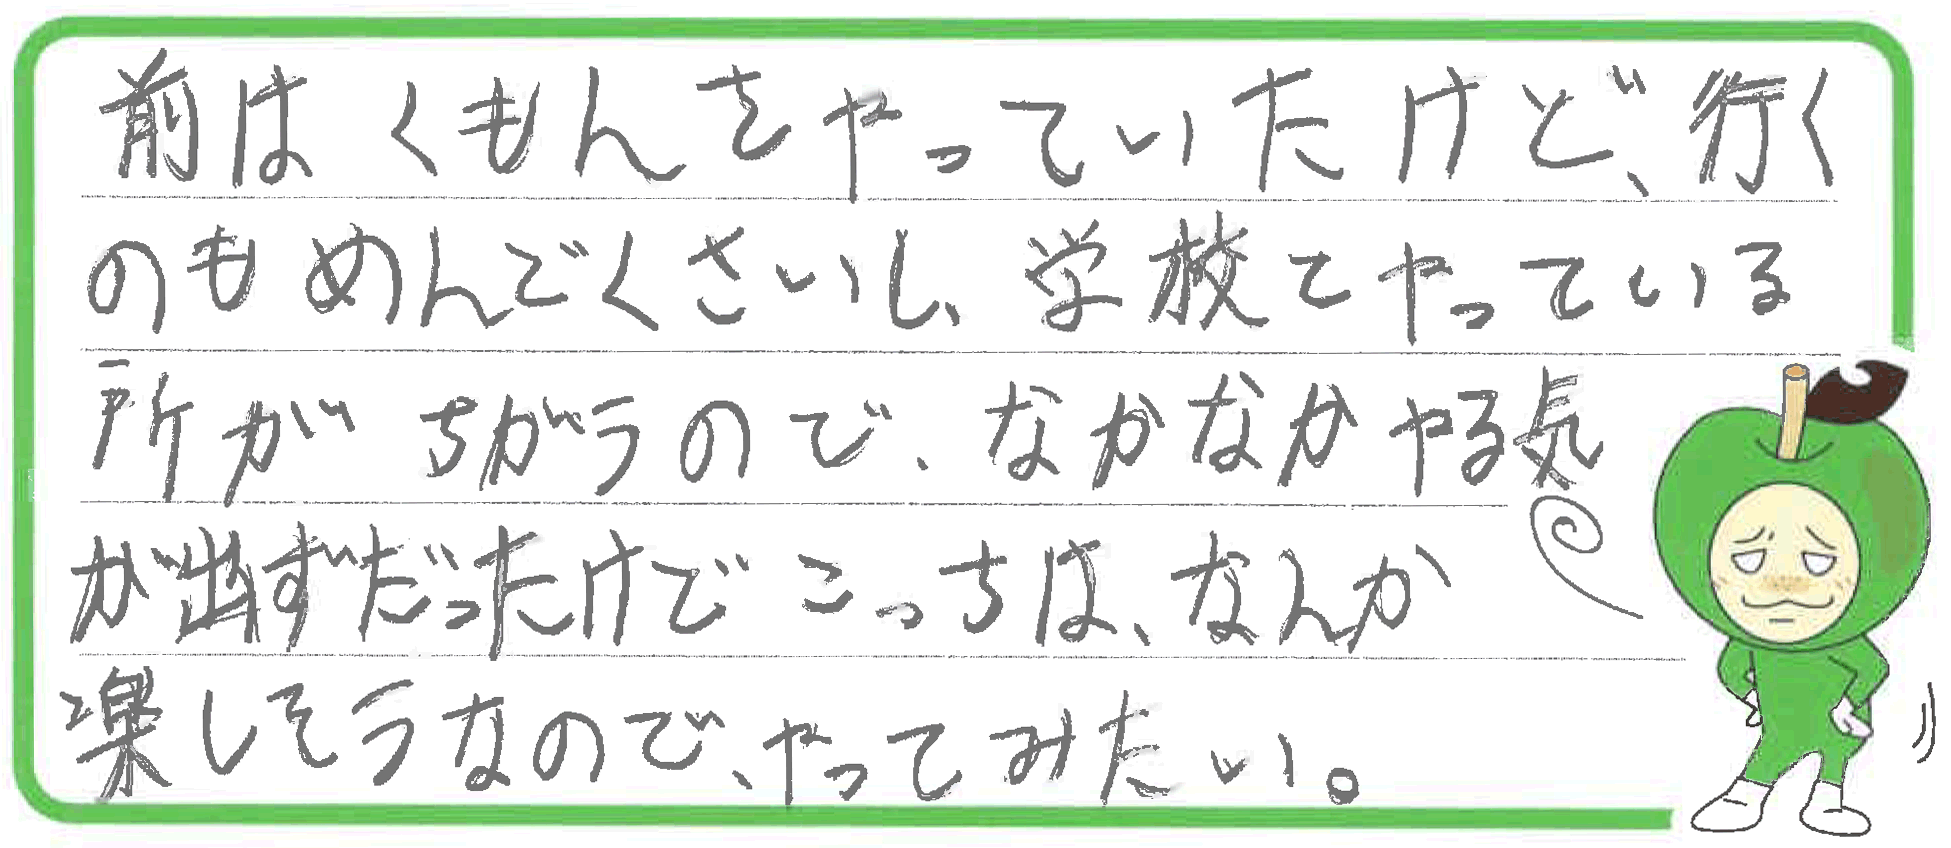 前はくもんをやっていたけど、行く
のもめんごくさいし、学校とやっている
所がちがうので、なかなかやる気
が出ずだったけでこっちは、なんか
楽しそうなので、やってみたい。